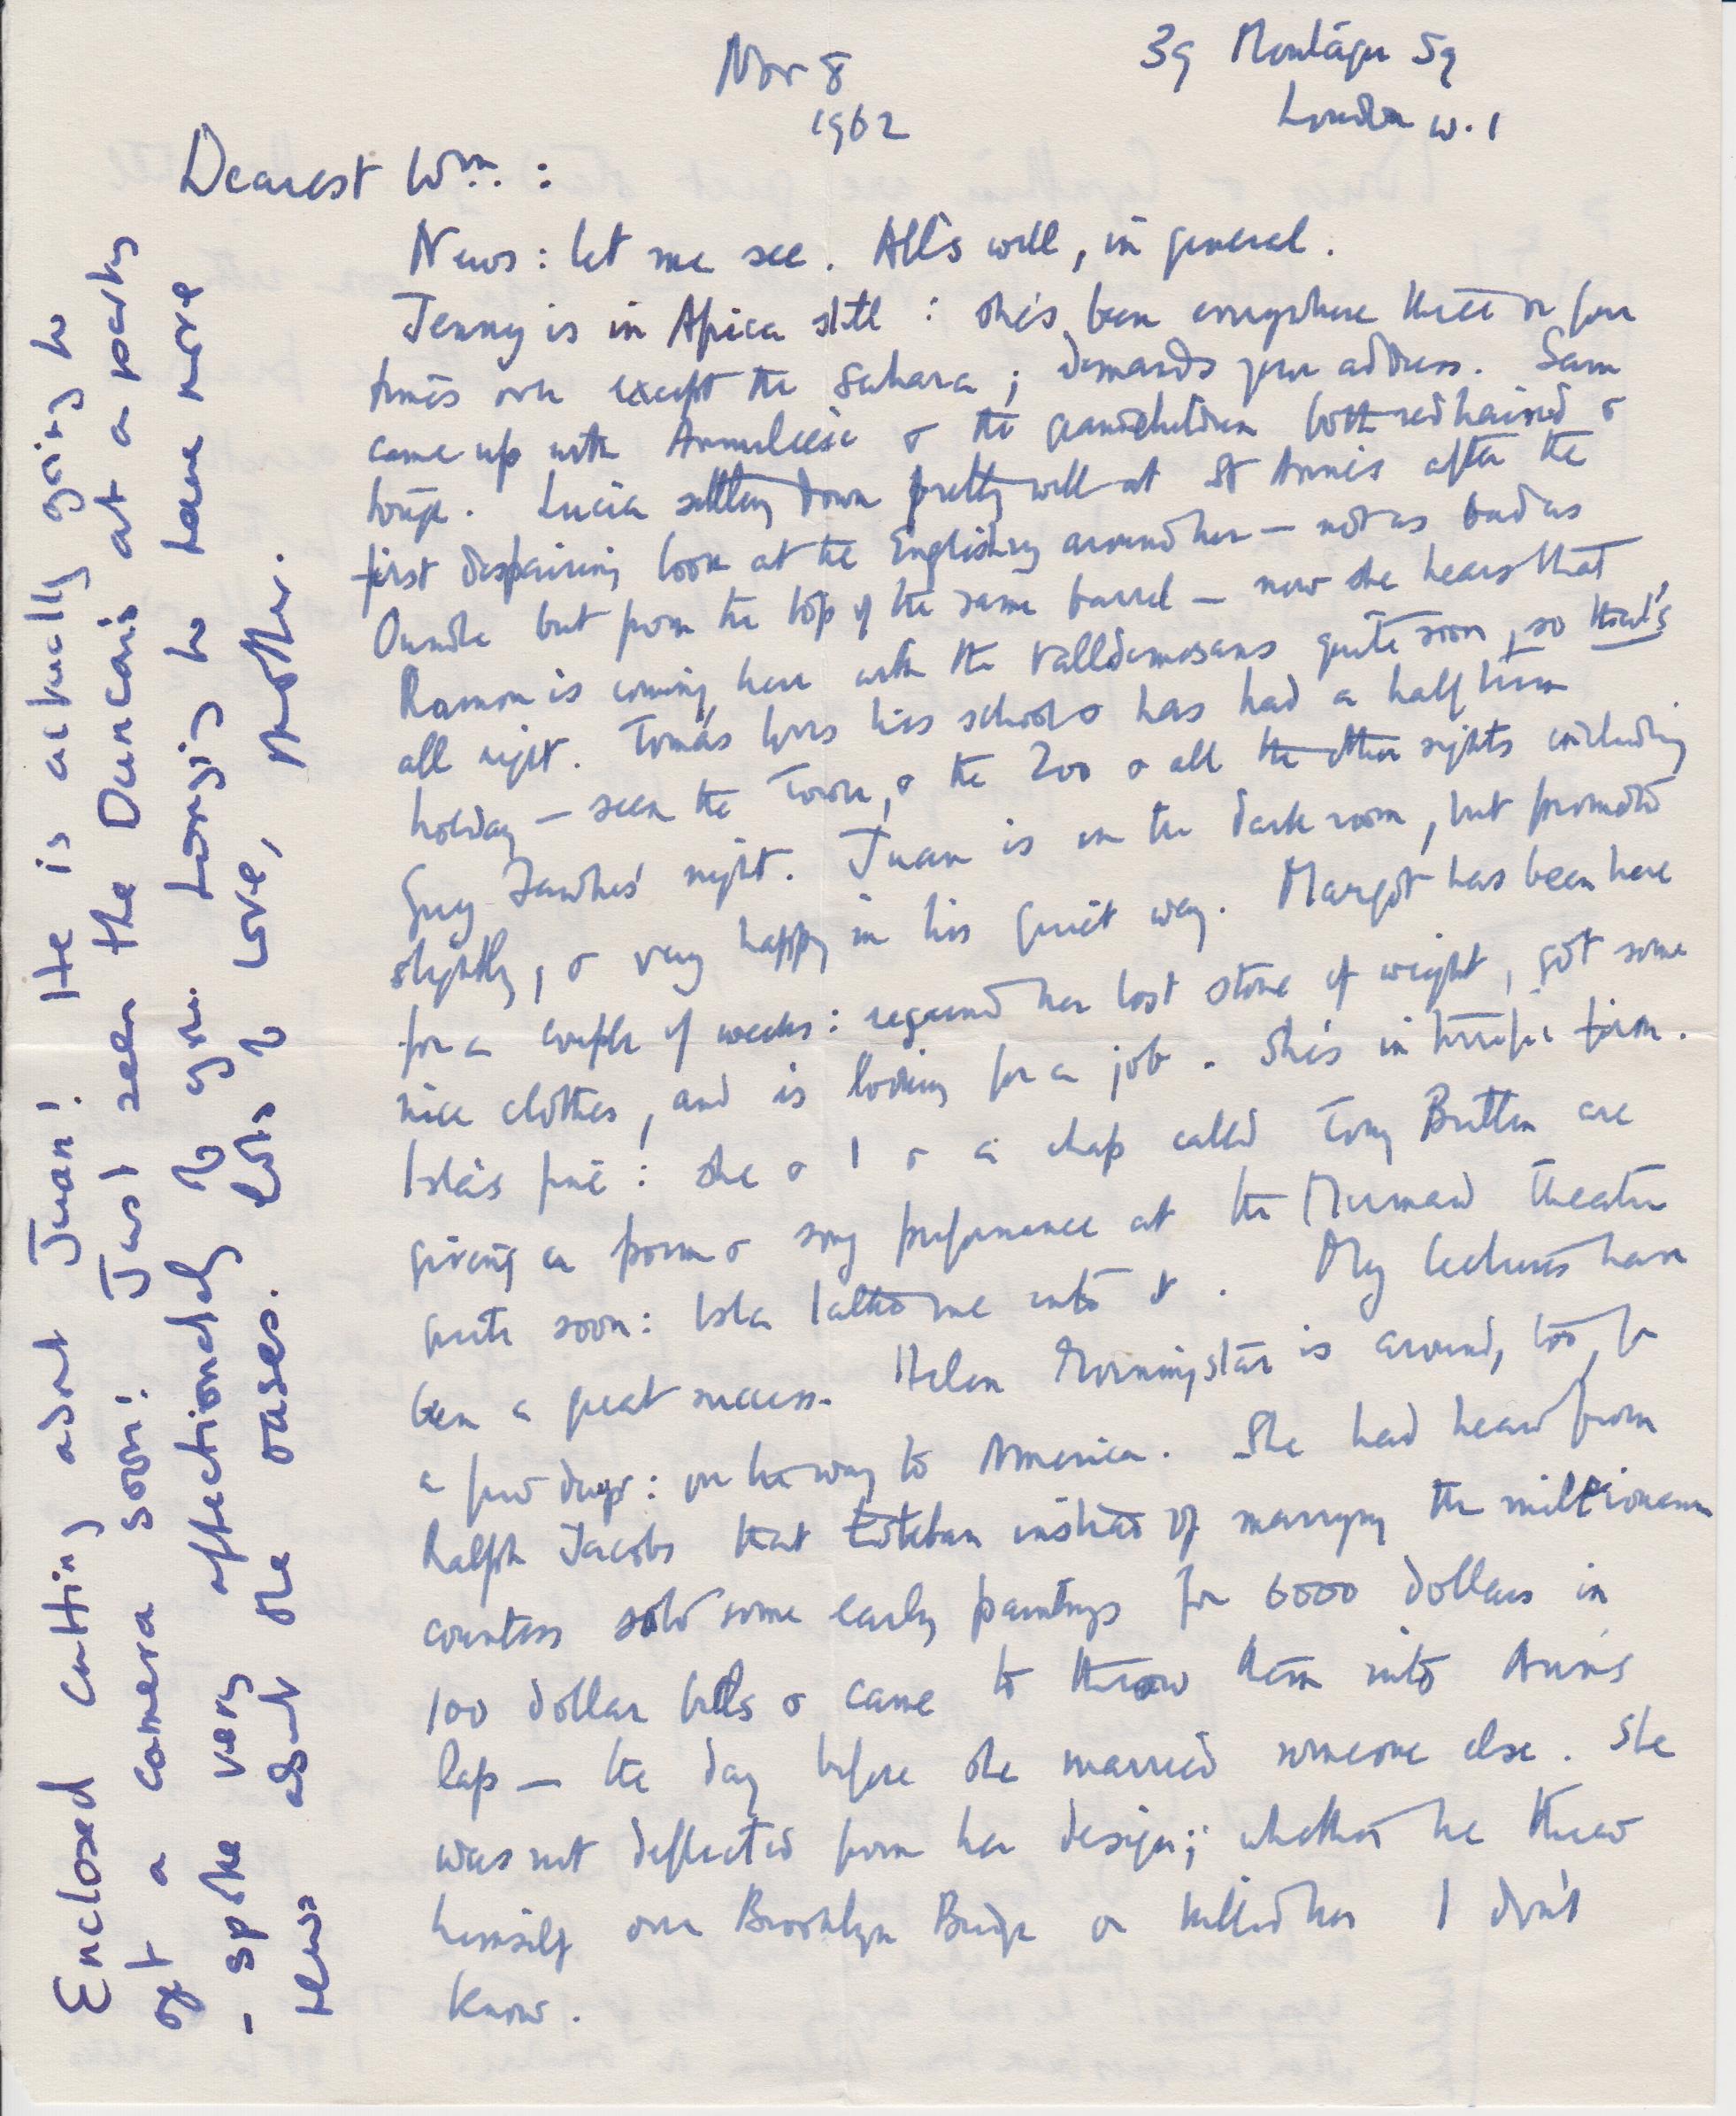 Nov 8
1962
39 Montagu Sq
London W.1
Dearest Wm. :
News: let me see. All's well, in general.
Jenny is in Africa still : she's been everywhere three or four
times over except the Sahara ; demands your address. Sam
came up with & the grandchildren both redhaired &
huge. Lucia settling down pretty well at St Anne's after the
first despairing look at the Englishry around her — not as bad as
Oundle but from the top of the same barrel — now she hears that
Ramon is coming here with the Valldemosans quite soon, so that's
all right. Tomás loves his school & has had a half term
holiday — seen the Tower, & the Zoo & all the other sights including
Guy Fawkes' night. Juan is in the dark room, but promoted
slightly, & very happy in his quiet way. Margot has been here
for a couple of weeks: regained her lost stone of weight, got some
nice clothes, and is looking for a job. She's in terrific form.
Isla's fine : she & I & a chap called Tony Britten are
giving a poem & song performance at the Mermaid Theatre
quite soon: Isla talked me into it. My lectures have
been a great success. Helen Morningstar is around, too, for
a few days: on her way to America. She had heard from
Ralph Jacobs that Esteban instead of marrying the millionaire
countess sold some early paintings for 6000 dollars in
100 dollar bills & came to throw them into Ann's
lap — the day before she married someone else. She
was not deflected from her design; whether he threw
himself over Brooklyn Bridge or killed her I don't
know.
Enclosed cutting about Juan! He is actually going to
get a camera soon! Just seen the Duncans at a party
- spoke very affectionately to you. Longing to have more
news about the oases. Lots of love,